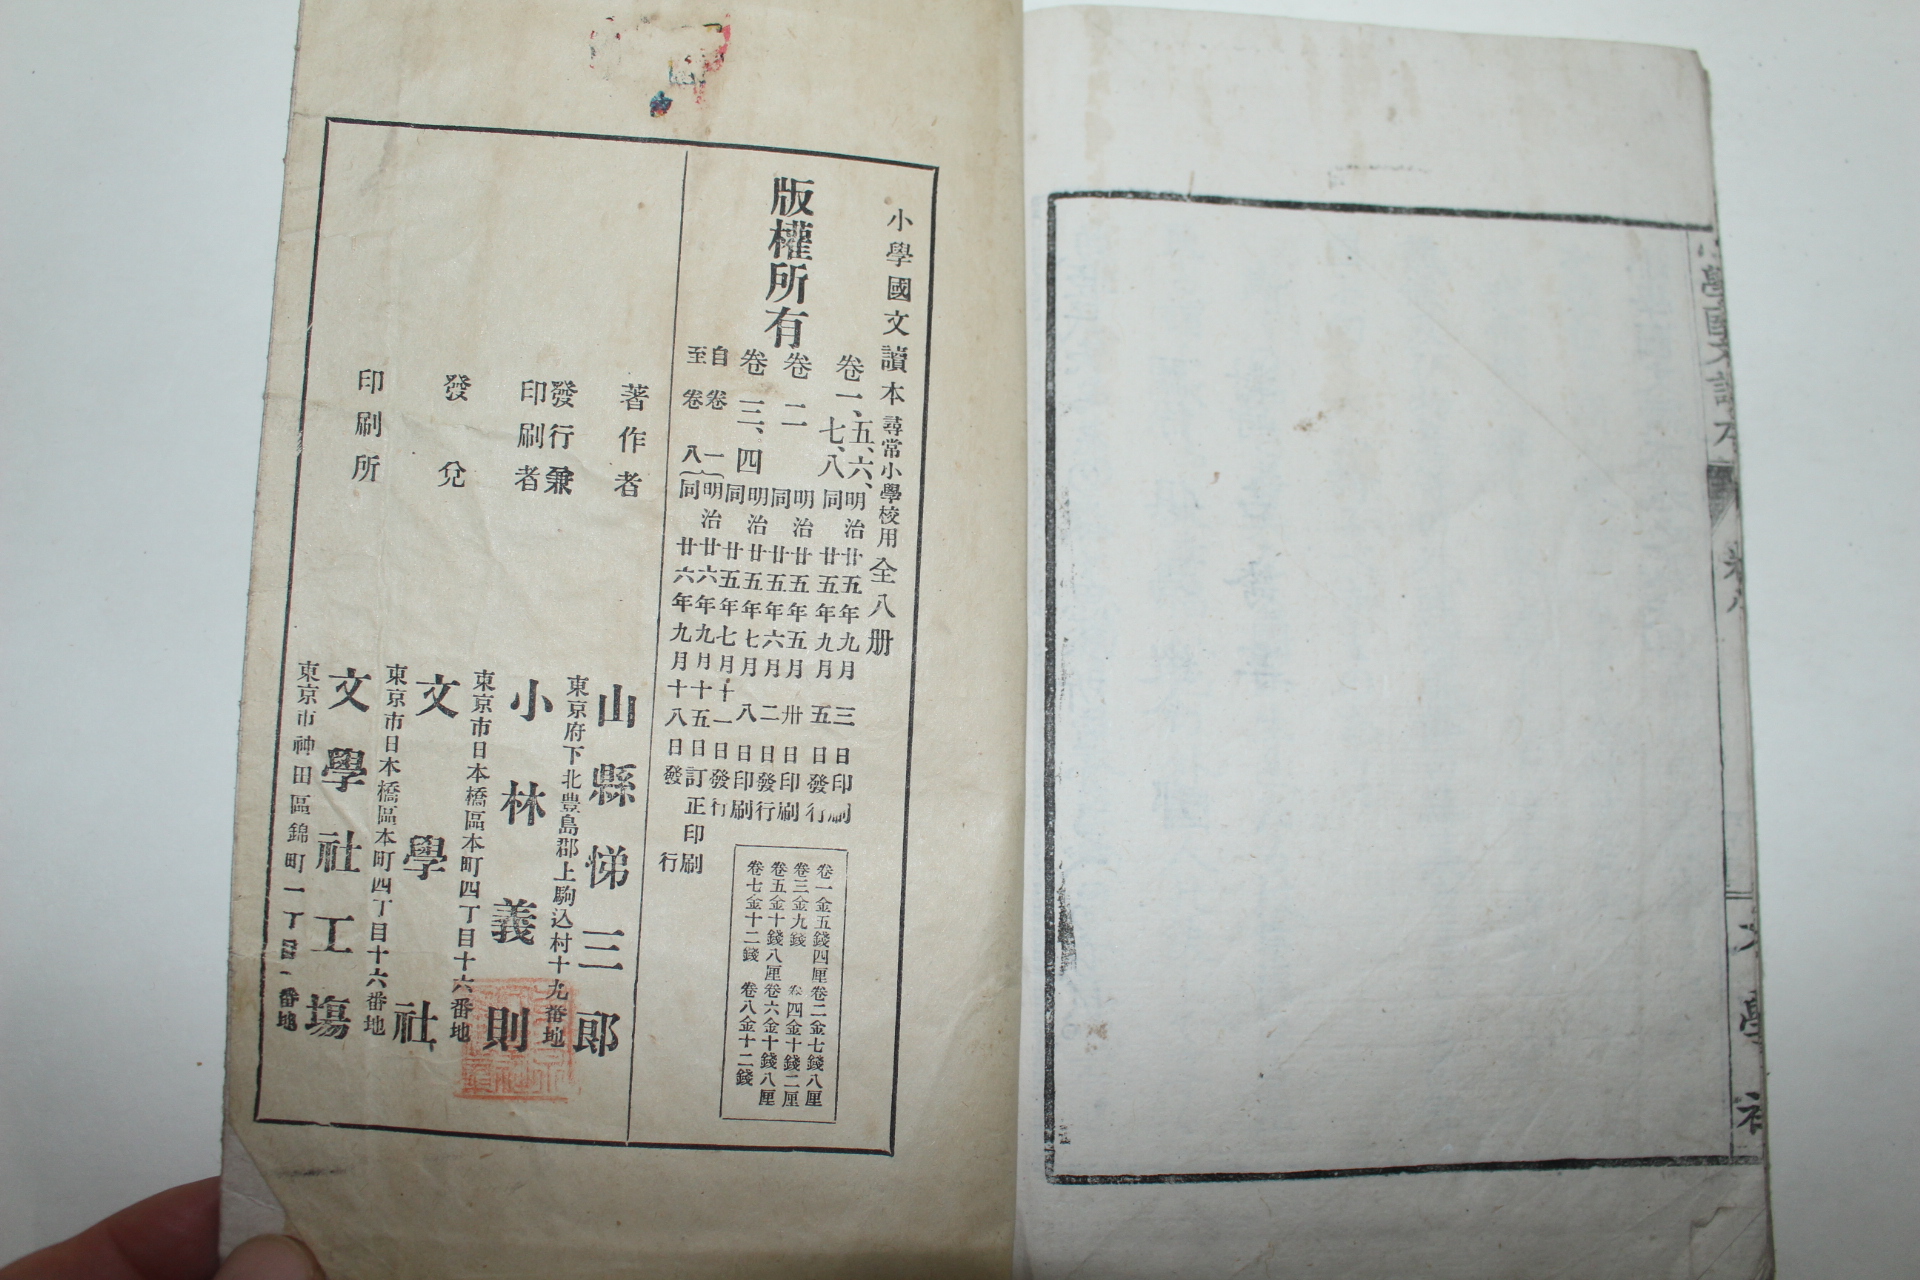 小學國文讀本 尋常小學校用 全八册
版權所有
卷一、五、六、七、八
明治廿五年九月三日印刷
同廿五年九月五日發行
卷二
明治廿五年五月卅日印刷
同廿五年六月二日發行
卷三、四
明治廿五年七月八日印刷
同廿五年七月十一日發行
自卷一
至卷八
明治廿六年九月十五日訂正印刷
同廿六年九月十八日發行
卷一金五錢四厘 卷二金七錢八厘
卷三金九錢 卷四金十錢二厘
卷五金十錢八厘 卷六金十錢八厘
卷七金十二錢 卷八金十二錢
著作者 山縣悌三郎
東京府下北豊島郡上駒込村十九番地
發行兼印刷者 小林義則
東京市日本橋區本町四丁目十六番地
發兌 文學社
東京市日本橋區本町四丁目十六番地
印刷所 文學社工塲
東京市神田區錦町一丁目一番地
小學國文讀本
卷八
文學社